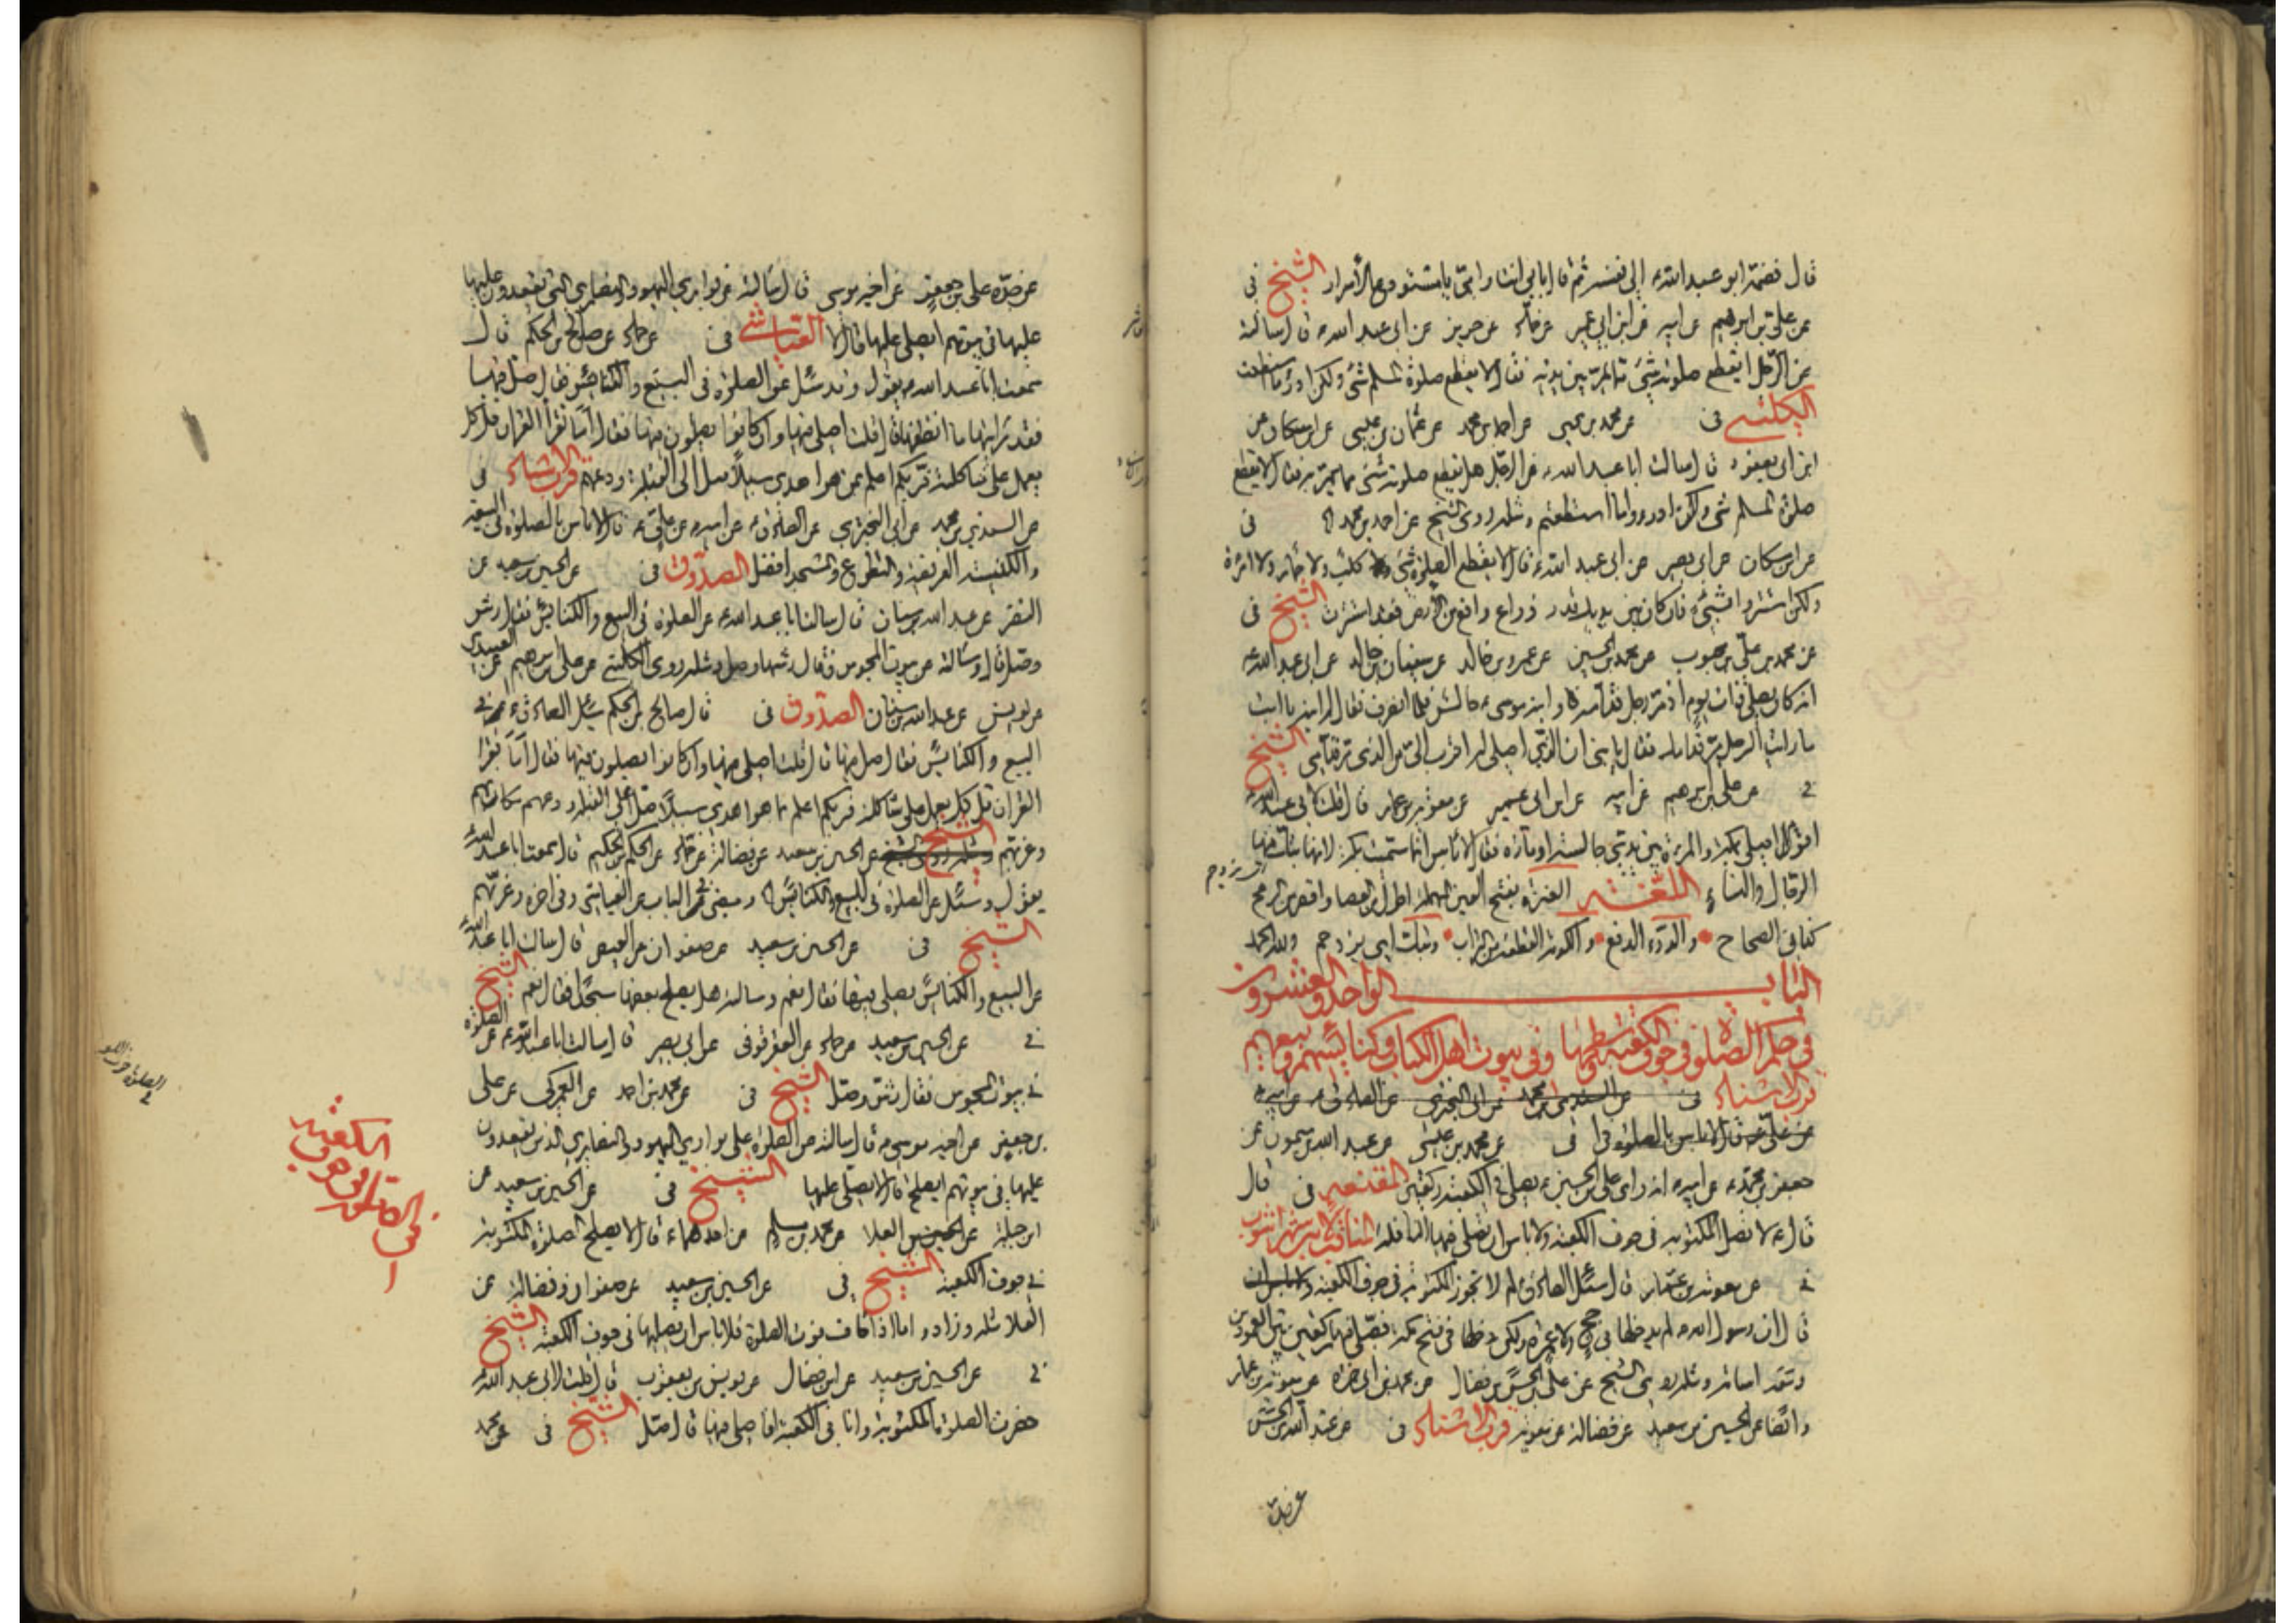 قال فضمّه ابو عبد الله ع الى نفسه ثم قال بابي انت وامي يا مستودع الأسرار الشيخ فى
عن علي بن ابرهيم عن ابيه عن ابن ابي عمير عن حماد عن حريز عن ابي عبد الله ع قال سالته
عن الرجل ايقطع صلوته شئ مما يمر بين يديه فقال لا يقطع صلوة المسلم شئ ولكن ادرؤا ما استطعت
الكليني فى عن محمد بن يحيى عن احمد بن محمد عن عثمان بن عيسى عن ابن مسكان عن
ابن ابي يعفور قال سالت ابا عبد الله ع عن الرجل هل يقطع صلوته شئ مما يمر به فقال لا يقطع
صلوة المسلم شئ ولكن ادرؤا ما استطعتم ومثله روى الشيخ عن احمد بن محمد فى
عن ابن مسكان عن ابي بصير عن ابي عبد الله ع قال لا يقطع الصلوة شئ كلب ولا حمار ولا امرأة
ولكن استتروا بشئ فان كان بين يديك قدر ذراع رافع من الارض فقد استترت الشيخ فى
عن محمد بن علي بن محبوب عن محمد بن الحسين عن عمرو بن خالد عن سفيان بن خالد عن ابي عبد الله ع
انه كان يصلي ذات يوم اذ مر رجل قدامه وابنه موسى ع جالس فلما انصرف قال له ابنه يا ابت
ما رايت الرجل مر قدامك فقال يا بني ان الذي اصلي له اقرب الي من الذي مر قدامي الشيخ
فى عن علي بن ابرهيم عن ابيه عن ابن ابي عمير عن معوية بن عمار قال قلت لابي عبد الله ع
اقوم اصلي بمكة والمرءة بين يدي جالسة او مارة فقال لا باس انما سميت بكة لانها تبك فيها
الرجال والنساء اللغتـــــير العنزة بفتح العين المهملة اطول من العصا واقصر من الرمح
كذا فى الصحاح والدرء الدفع والكومة القطعة من التراب وتبك اي يزدحم ولله الحمد
البابـــــــــ الواحد والعشرون
فى حكم الصلوة فى جوف الكعبة وسطحها وفى بيوت اهل الكتاب وكنايسهم وبيعهم
قرب الاسناد فى عن السندي بن محمد عن ابي البختري عن الصادق ع عن ابيه ع
عن علي ع قال لا باس بالصلوة فى عن محمد بن عيسى عن عبد الله بن ميمون عن
جعفر بن محمد ع عن ابيه ع انه راى علي بن الحسين ع يصلي فى الكعبة ركعتين المقنعه فى قال
قال ع لا تصل المكتوبة فى جوف الكعبة ولا باس ان تصلي فيها النافلة المناقب لابن شهراشوب
فى عن معوية بن عمار قال سئل الصادق ع لم لا تجوز المكتوبة فى جوف الكعبة
قال ان رسول الله ص لم يدخلها فى حج ولا عمرة ولكن دخلها فى فتح مكة فصلى فيها ركعتين بين العمودين
ومعه اسامة ومثله روى الشيخ عن علي بن الحسن بن فضال عن محمد بن ابي حمزة عن معوية بن عمار
وايضا عن الحسين بن سعيد عن فضالة عن معوية قرب الاسناد فى عن عبد الله بن الحسن
عن جده
عن جده علي بن جعفر عن اخيه موسى قال سالته عن بواري اليهود والنصارى التي يقعدون عليها
عليها فى بيوتهم ايصلي عليها قال لا العياشي فى عن حماد عن صالح بن الحكم قال
سمعت ابا عبد الله ع يقول وقد سئل عن الصلوة فى البيع والكنائس فقال صل فيها
فقد رايتها ما انظفها قال قلت اصلي فيها وان كانوا يصلون فيها فقال اما تقرأ القران قل كل
يعمل على شاكلته فربكم اعلم بمن هو اهدى سبيلا صل الى القبلة ودعهم قرب الاسناد فى
عن السندي بن محمد عن ابي البختري عن الصادق ع عن ابيه ع عن علي ع قال لا باس بالصلوة فى البيعة
والكنيسة الفريضة والتطوع والمسجد افضل الصدوق فى عن الحسين بن سعيد عن
النضر عن عبد الله بن سنان قال سالت ابا عبد الله ع عن الصلوة فى البيع والكنايس فقال رش
وصل قال وسالته عن بيوت المجوس فقال رشها وصل ومثله روى الكليني عن علي بن ابرهيم عن العبيدي
عن يونس عن عبد الله بن سنان الصدوق فى قال صالح بن الحكم سئل الصادق ع عن
البيع والكنايس فقال صل فيها قال قلت اصلي فيها وان كانوا يصلون فيها فقال اما تقرا
القران قل كل يعمل على شاكلته فربكم اعلم بمن هو اهدى سبيلا صل على القبلة ودعهم
وغربهم الشيخ عن الحسين بن سعيد عن فضالة عن حماد عن الحكم بن الحكيم قال سمعت ابا عبد الله ع
يقول وسئل عن الصلوة فى البيع والكنايس ومضى فى الباب عن العياشي وفى اخره وغربهم
الشيخ فى عن الحسين بن سعيد عن صفوان عن العيص قال سالت ابا عبد الله ع
عن البيع والكنايس يصلي فيها فقال نعم وسالته هل يصلح بعضها مسجدا فقال نعم الشيخ
فى عن الحسين بن سعيد عن حماد عن العقرقوفى عن ابي بصير قال سالت ابا عبد الله ع عن الصلوة
فى بيوت المجوس فقال رش وصل الشيخ فى عن محمد بن احمد عن العمركي عن علي
بن جعفر عن اخيه موسى ع قال سالته عن الصلوة على بواري اليهود والنصارى الذين يقعدون
عليها فى بيوتهم ايصلح قال لا يصلي عليها الشيخ فى عن الحسين بن سعيد عن
ابن جبلة عن العلا عن محمد بن مسلم عن احدهما ع قال لا يصلح صلوة المكتوبة
فى جوف الكعبة الشيخ فى عن الحسين بن سعيد عن صفوان وفضالة عن
العلا مثله وزاد واما اذا خاف فوت الصلوة فلا باس ان يصليها فى جوف الكعبة الشيخ
فى عن الحسين بن سعيد عن ابن فضال عن يونس بن يعقوب قال قلت لابي عبد الله ع
حضرت الصلوة المكتوبة وانا فى الكعبة افاصلي فيها قال صل الشيخ فى عن محمد
فى الصلوة فى جوف
الكعبة